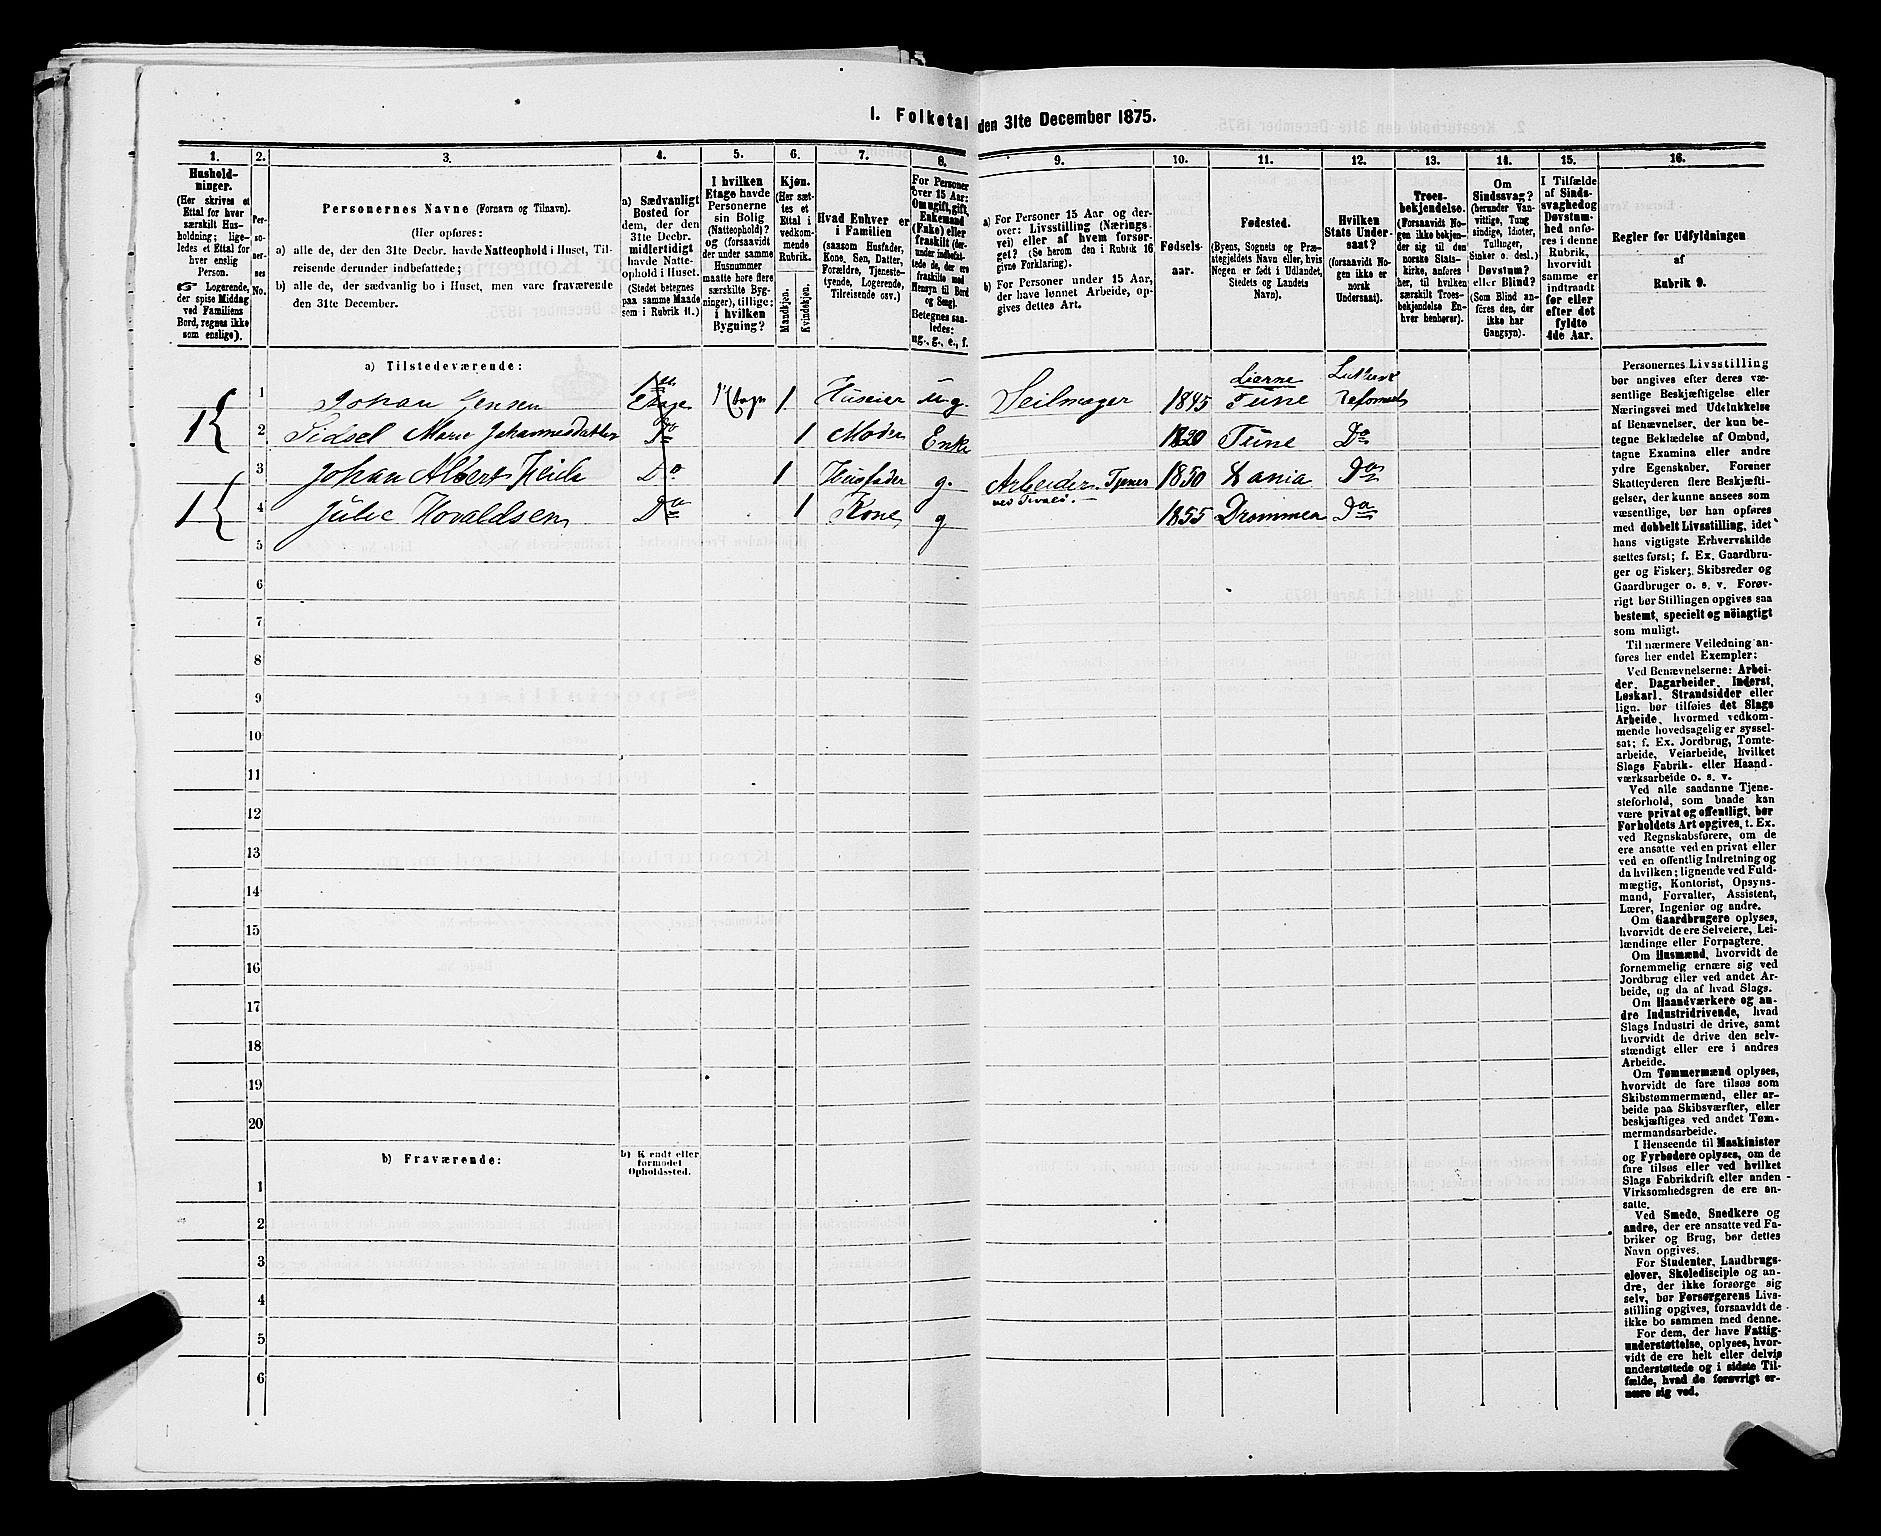 1. Folketal den 31te December 1875.
1. 2. 3. 4. 5. 6. 7. 8. 9. 10. 11. 12. 13. 14. 15. 16.
Hushold-
ninger.
(Her skrives et
Ettal for hver
særskilt Hus-
holdning; lige-
ledes et Ettal for
hver enslig
Person.
☞ Logerende,
der spise Middag
ved Familiens
Bord, regnes ikke
som enslige).
Per-
so-
ner-
nes
No.
Personernes Navne (Fornavn og Tilnavn).
(Her opføres:
a) alle de, der den 31te Decbr. havde Natteophold i Huset, Til-
reisende derunder indbefattede;
b) alle de, der sædvanlig bo i Huset, men vare fraværende
den 31te December.
a) Sædvanligt
Bosted for
dem, der den
31te Decbr.
midlertidigt
havde Natte-
ophold i Huset.
(Stedet betegnes
paa samme Maade
som i Rubrik 11.)
I hvilken
Etage havde
Personerne
sin Bolig
(Natteophold)?
og (forsaavidt
der under samme
Husnummer
maatte høre flere
særskilte Byg-
ninger), tillige:
i hvilken
Bygning?
Kjøn.
(Her sæt-
tes et
Ettal i
vedkom-
mende
Rubrik.
Mandkjøn.
Kvindekjøn.
Hvad Enhver er
i Familien
(saasom Husfader,
Kone, Søn, Datter,
Forældre, Tjeneste-
tyende, Logerende,
Tilreisende osv.)
For Personer
over 15 Aar:
Om ugift, gift,
Enkemand
(Enke) eller
fraskilt (der-
under indbefat-
tede de, der ere
fraskilte med
Hensyn til Bord
og Seng).
Betegnes saa-
ledes:
ug., g., e., f.
a) For Personer 15 Aar og der-
over: Livsstilling (Nærings-
vei) eller af hvem forsør-
get? (Se herom den i Rubrik 16
givne Forklaring).
b) For Personer under 15 Aar,
der have lønnet Arbeide, op-
gives dettes Art.
Fødsels-
aar.
Fødested.
(Byens, Sognets og Præ-
stegjeldets Navn eller, hvis
Nogen er født i Udlandet,
Stedets og Landets
Navn).
Hvilken
Stats Under-
saat?
(forsaavidt No-
gen ikke er
norsk
Undersaat).
Troes-
bekjendelse.
(Forsaavidt No-
gen ikke bekjen-
der sig til den
norske Stats-
kirke, anføres
her, til hvilken
særskilt Troes-
bekjendelse En-
hver henhører).
Om
Sindssvag?
(herunder Van-
vittige, Idioter,
Tullinger,
Sinker o. desl.)
Døvstum?
eller Blind?
(Som Blind an-
føres den, der
ikke har
Gangsyn).
I Tilfælde
af Sinds-
svaghed og
Døvstum-
hed anfø-
res i denne
Rubrik,
hvorvidt
samme er
indtraadt
før eller
efter det
fyldte
4de Aar.
Regler for Udfyldningen
af
Rubrik 9.
a) Tilstedeværende:
1 1 Johan Jensen 1 Huseier ug. Seilmager 1845 Tune
2 Sidsel Marie Johannesdatter Do 1 Moder Enke 1820 Tune Do
1 3 Johan Albert Do 1 Husfader g. Arbeider 1850 Do
4 Julie Do 1 Kone g 1855 Drammen Do
5
6
7
8
9
10
11
12
13
14
15
16
17
18
19
20
b) Fraværende: b) Kjendt eller
formodet
Opholdssted.
1
2
3
4
5
6
Personernes Livsstilling
bør angives efter deres væ-
sentlige Beskjæftigelse eller
Næringsvei med Udelukkelse
af Benævnelser, der kun be-
tegne Beklædelse af Ombud,
tagne Examina eller andre
ydre Egenskaber. Forener
Skatteyderen flere Beskjæfti-
gelser, der kunne ansees som
væsentlige, bør han opføres
med dobbelt Livsstilling, idet
hans vigtigste Erhvervskilde
sættes først; f. Ex. Gaardbru-
ger og Fisker; Skibsreder og
Gaardbruger o. s. v. Forøv-
rigt bør Stillingen opgives saa
bestemt, specielt og nøiagtigt
som muligt.
Til nærmere Veiledning an-
føres her endel Exempler:
Ved Benævnelserne: Arbei-
der, Dagarbeider, Inderst,
Løskarl, Strandsidder eller
lign. bør tilføies det Slags
Arbeide, hvormed vedkom-
mende hovedsagelig er syssel-
sat; f. Ex. Jordbrug, Tomte-
arbeide, Veiarbeide, hvilket
Slags Fabrik- eller Haand-
værksarbeide o. s. v.
Ved alle saadanne Tjene-
steforhold, som baade kan
være privat og offentligt, bør
Forholdets Art opgives, t. Ex.
ved Regnskabsførere, om de
ere ansatte ved en privat eller
ved en offentlig Indretning og
da hvilken; lignende ved Fuld-
mægtig, Kontorist, Opsyns-
mand, Forvalter, Assistent,
Lærer, Ingeniør og andre.
Om Gaardbrugere oplyses,
hvorvidt de ere Selveiere, Lei-
lændinge eller Forpagtere.
Om Husmænd, hvorvidt de
fornemmelig ernære sig ved
Jordbrug eller ved andet Ar-
beide, og da af hvad Slags.
Om Haandværkere og an-
dre Industridrivende, hvad
Slags Industri de drive, samt
hvorvidt de drive den selv-
stændigt eller ere i andres
Arbeide.
Om Tømmermænd oplyses,
hvorvidt de fare tilsøs som
Skibstømmermænd, eller ar-
beide paa Skibsværfter, eller
beskjæftiges ved andet Tøm-
mermandsarbeide.
I Henseende til Maskinister
og Fyrbødere oplyses, om de
fare tilsøs eller ved hvilket
Slags Fabrikdrift eller anden
Virksomhedsgren de ere an-
satte.
Ved Smede, Snedkere og
andre, der ere ansatte ved Fa-
briker og Brug, bør dettes
Navn opgives.
For Studenter, Landbrugs-
elever, Skoledisciple og an-
dre, der ikke forsørge sig
selv, bør Forsørgerens Livs-
stilling opgives, forsaavidt de
ikke bo sammen med denne.
For dem, der have Fattig-
understøttelse, oplyses, hvor-
vidt de ere helt eller delvis
understøttede og i sidste Til-
fælde, hvad de forøvrigt er-
nære sig ved.